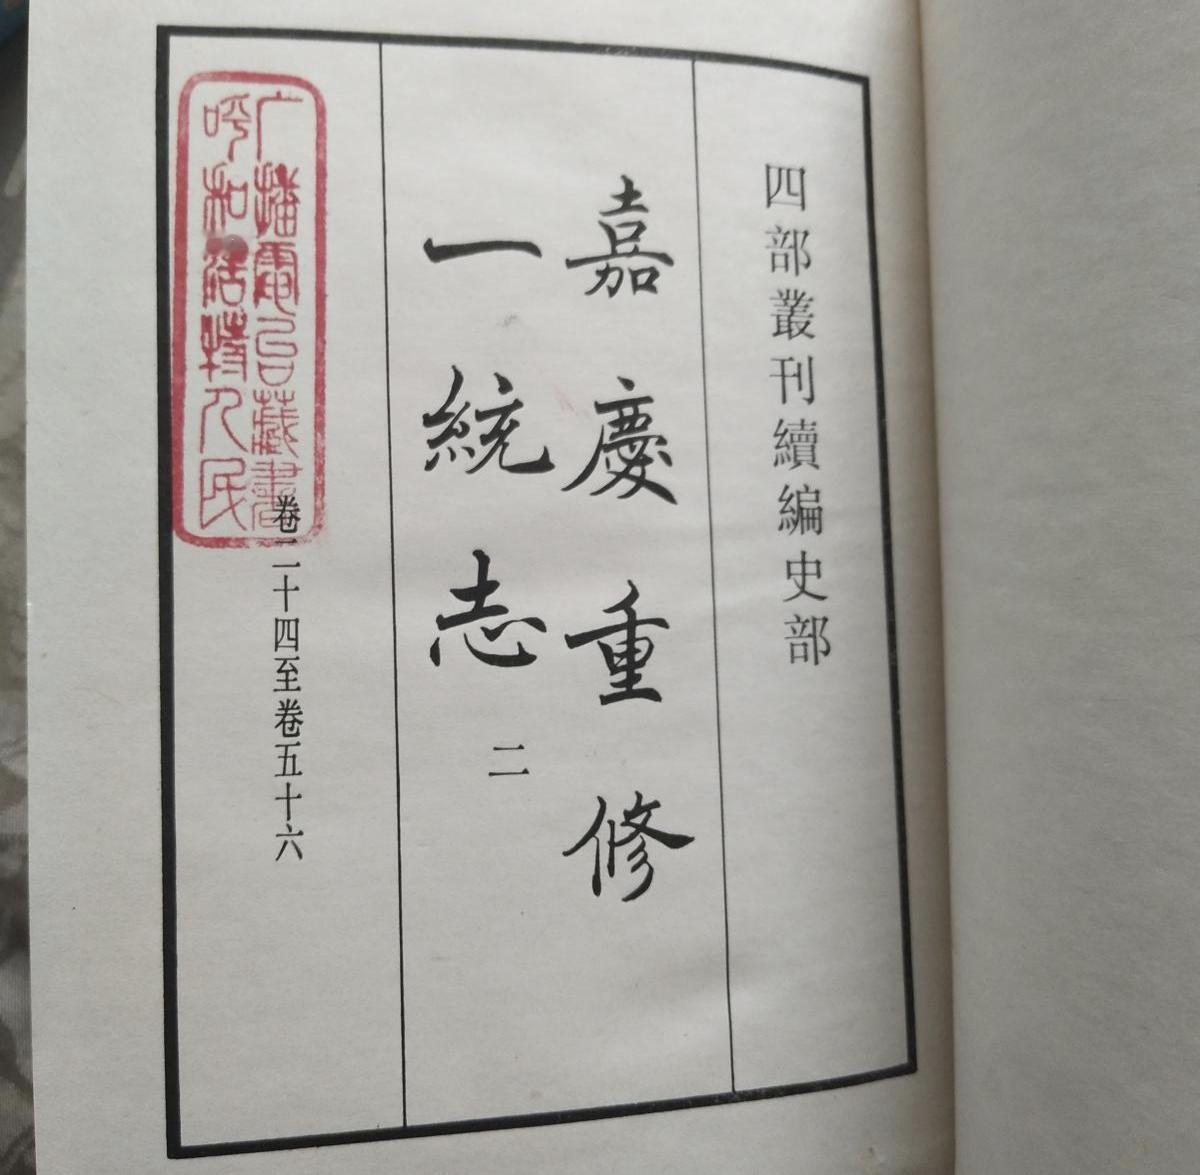 四部叢刊續編史部
嘉慶重修
一統志
二
卷二十四至卷五十六
呼和浩特人民
广播電台藏書